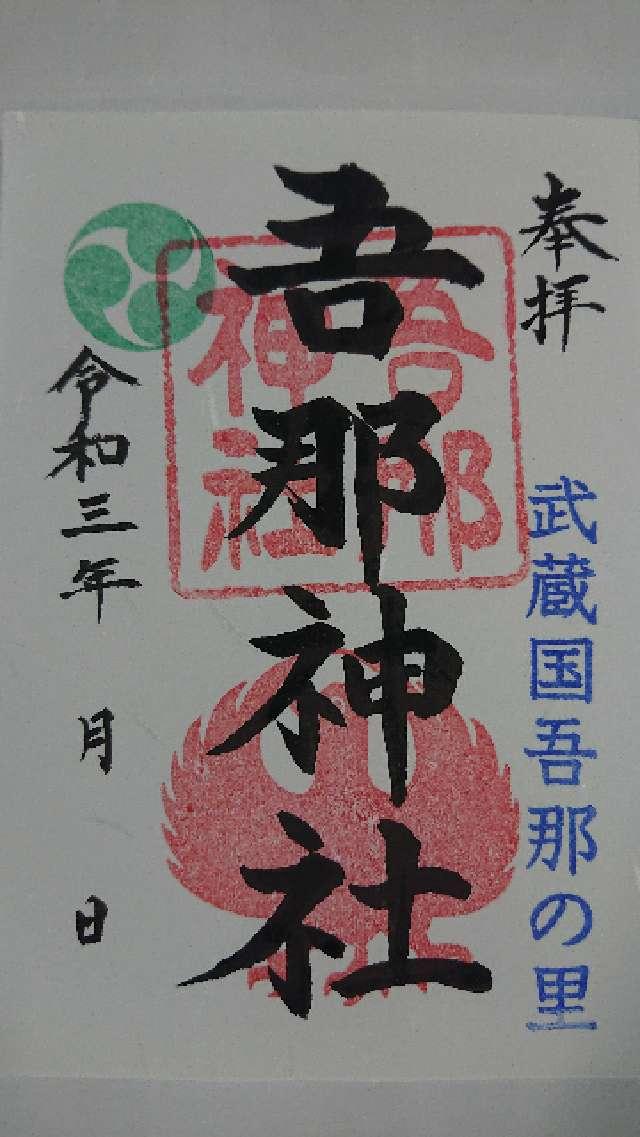 奉拝
武蔵国吾那の里
吾那神社
吾那
神社
令和三年 月 日